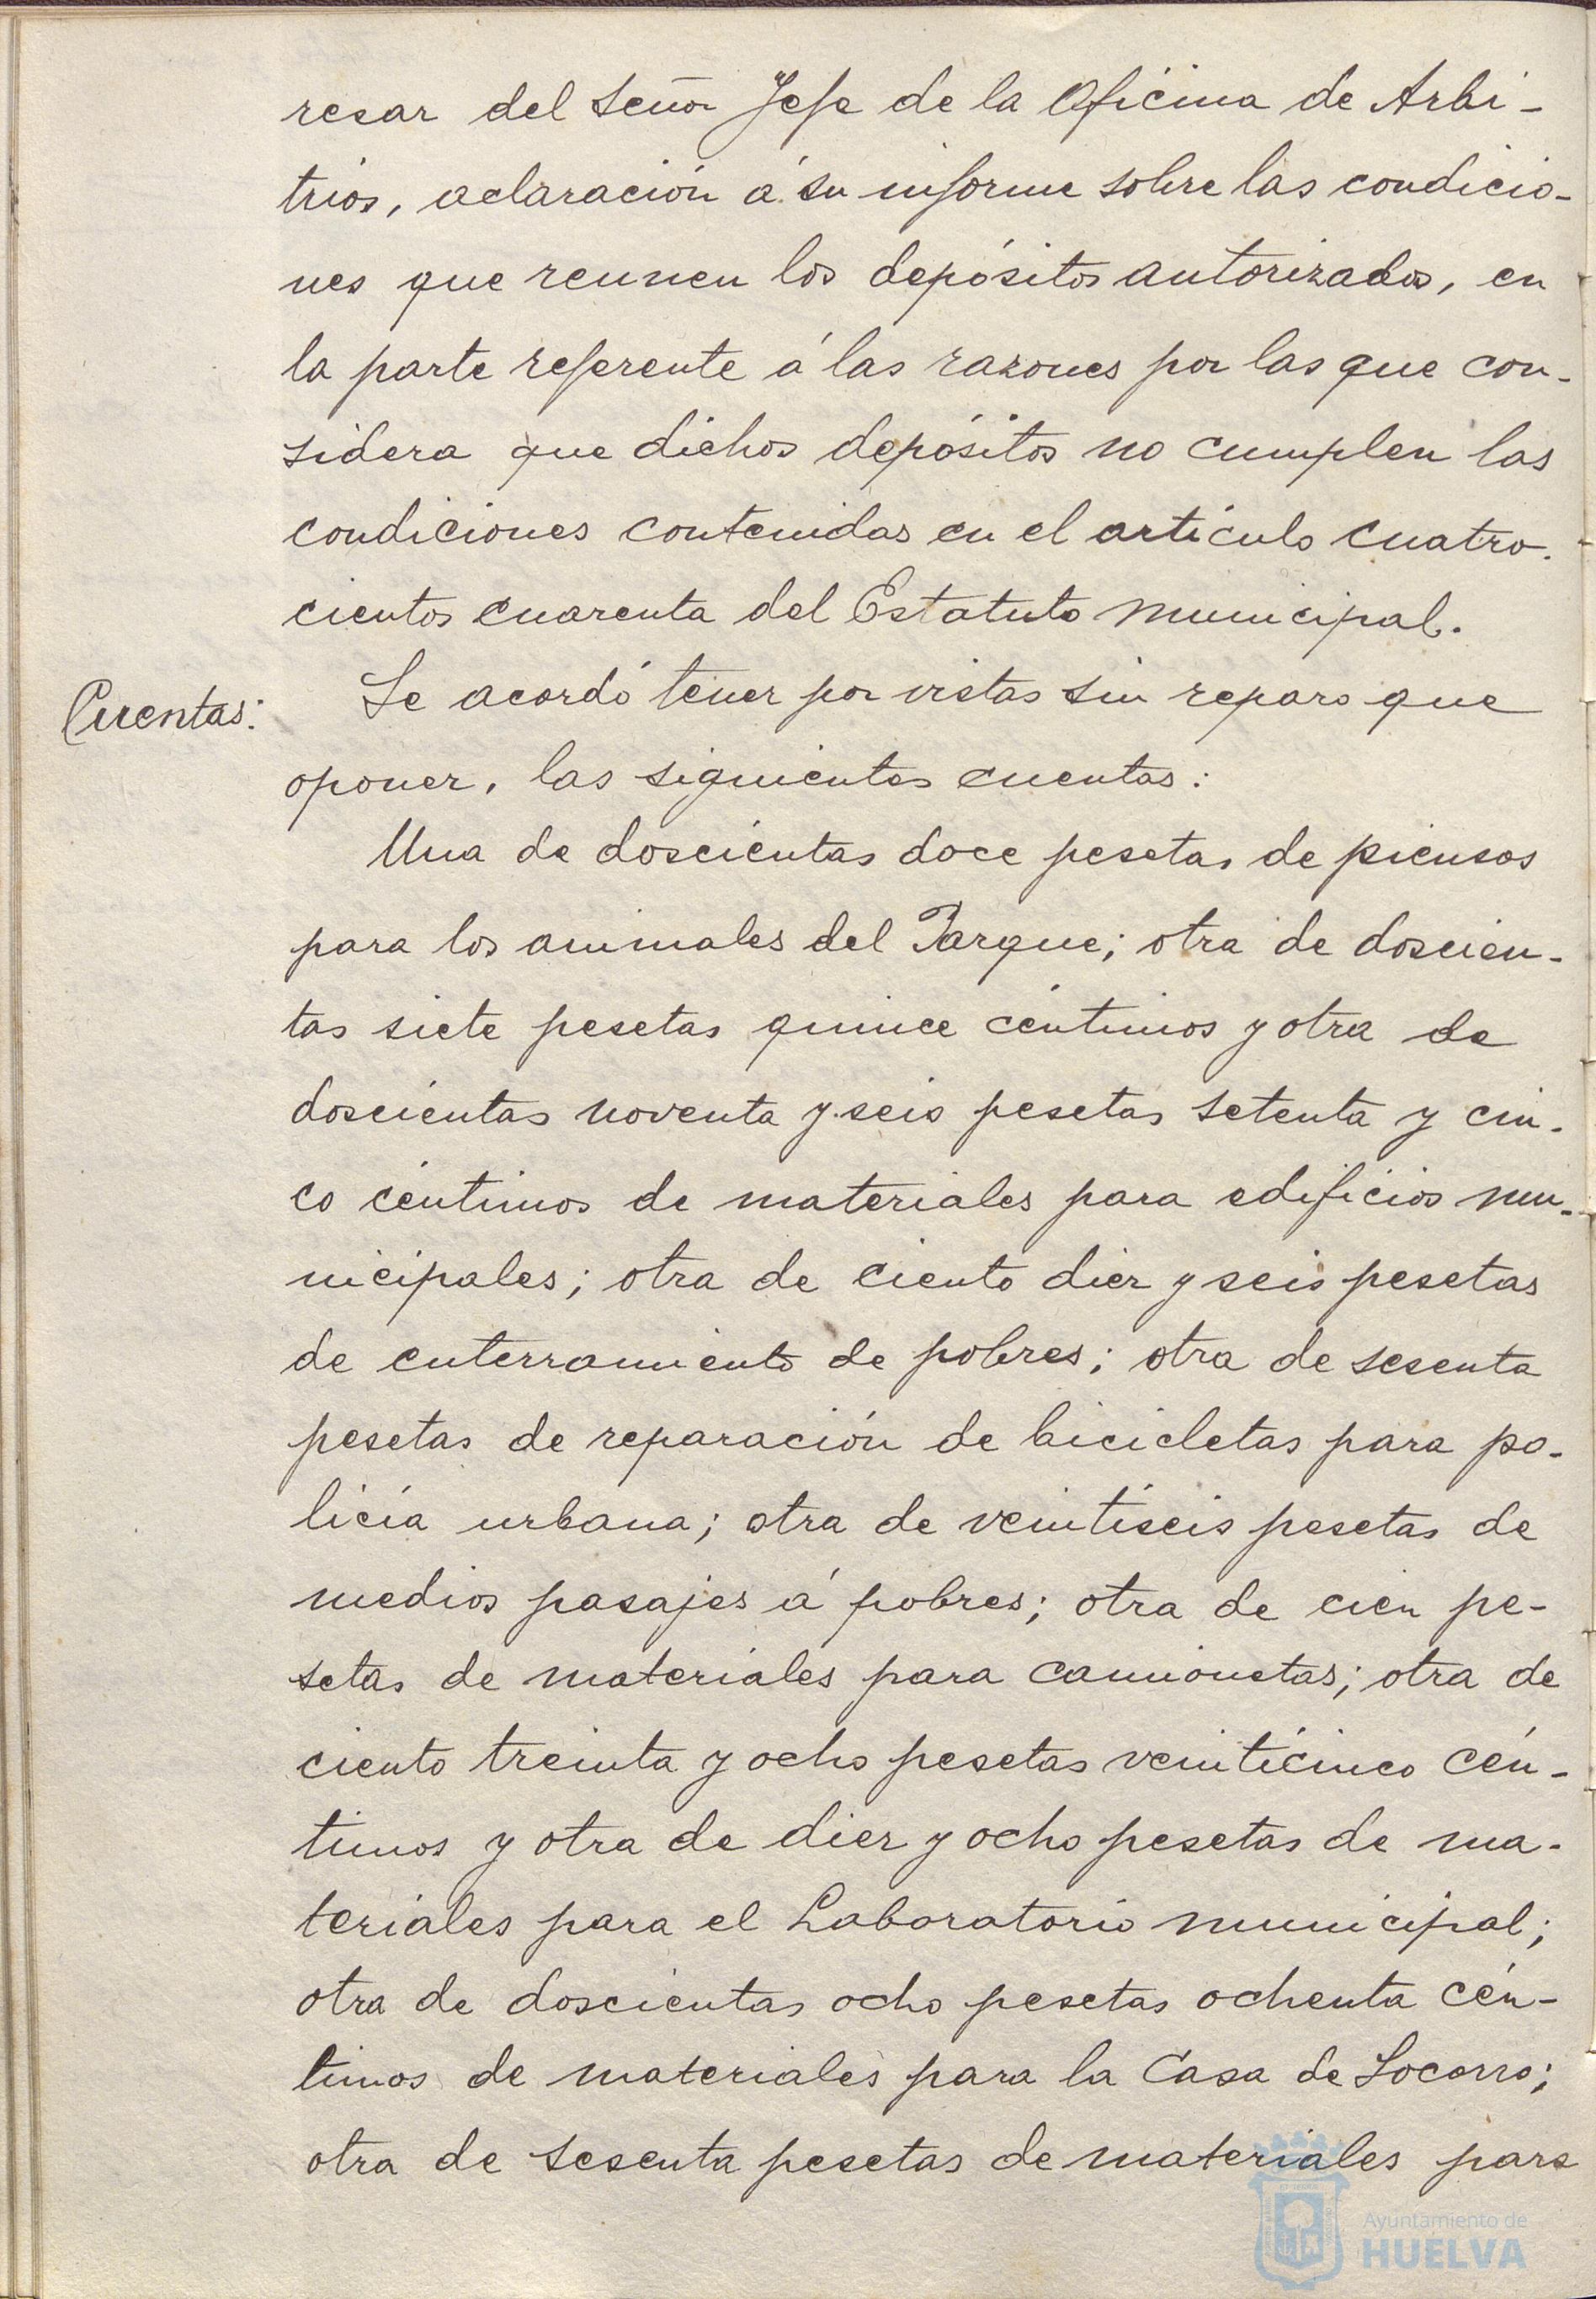 resar del Señor Jefe de la Oficina de Arbi-
trios, aclaración á su informe sobre las condicio-
nes que reunen los depósitos autorizados, en
la parte referente á las razones por las que con-
sidera que dichos depósitos no cumplen las
condiciones contenidas en el artículo cuatro-
cientos cuarenta del Estatuto municipal.
Cuentas: Se acordó tener por vistas sin reparo que
oponer, las siguientes cuentas:
Una de doscientas doce pesetas de piensos
para los animales del Parque; otra de doscien-
tas siete pesetas quince céntimos y otra de
doscientas noventa y seis pesetas setenta y cin-
co céntimos de materiales para edificios mu-
nicipales; otra de ciento diez y seis pesetas
de enterramiento de pobres; otra de sesenta
pesetas de reparación de bicicletas para po-
licía urbana; otra de veintiseis pesetas de
medios pasajes á pobres; otra de cien pe-
setas de materiales para camionetas; otra de
ciento treinta y ocho pesetas veinticinco cén-
timos y otra de diez y ocho pesetas de ma-
teriales para el Laboratorio municipal;
otra de doscientas ocho pesetas ochenta cén-
timos de materiales para la Casa de Socorro;
otra de sesenta pesetas de materiales para
Ayuntamiento de
HUELVA